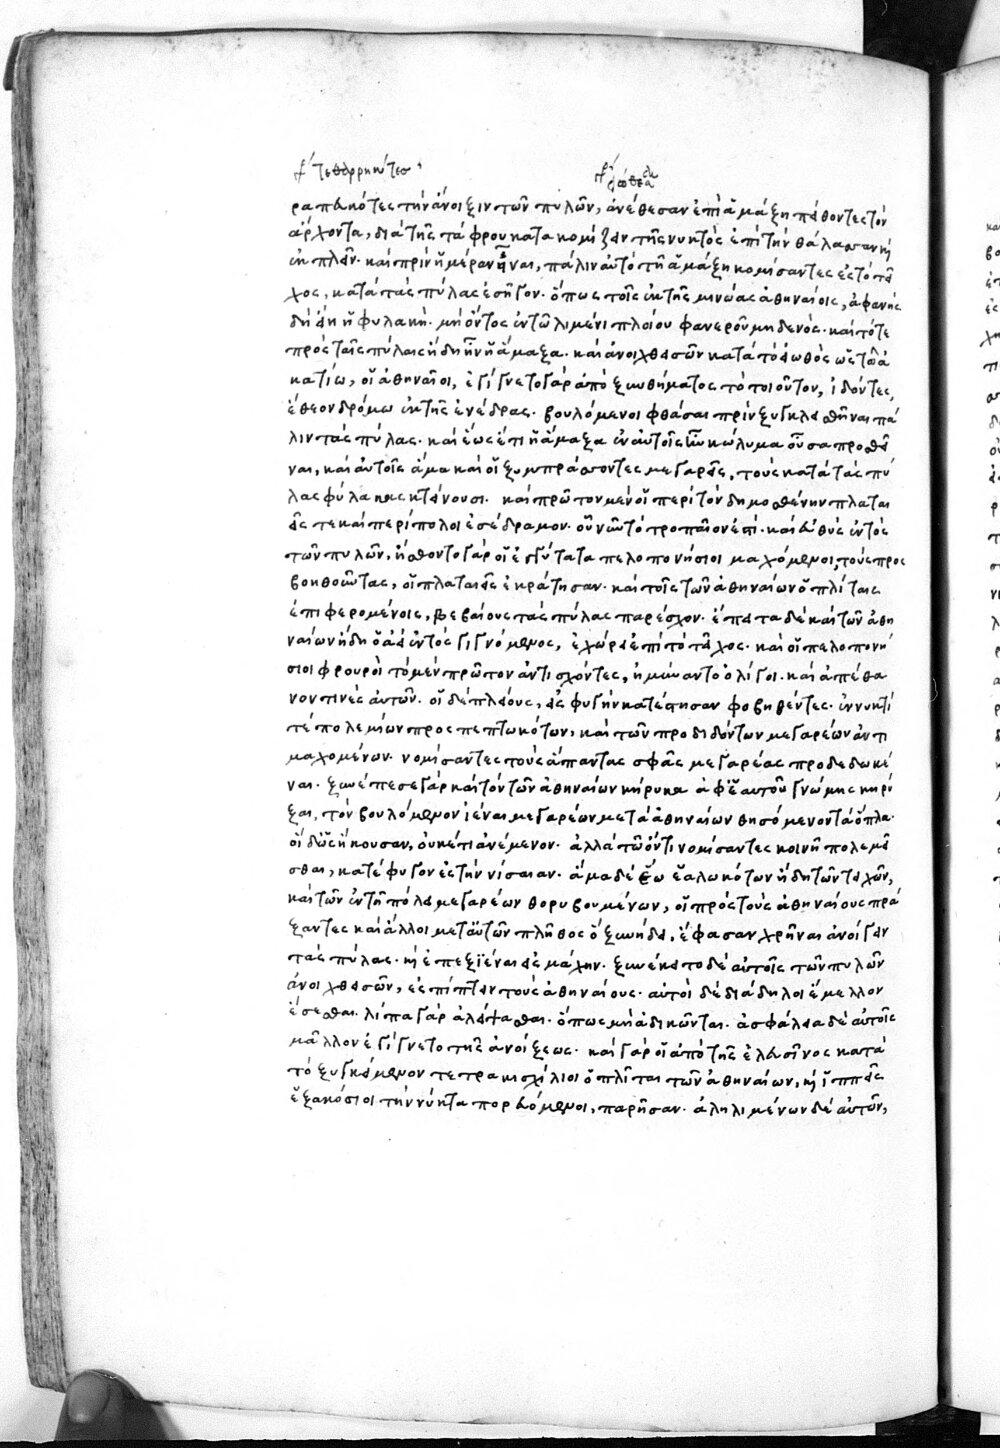 τεθαρρηκότες
ραπευκότες τὴν ἄνοιξιν τῶν πυλῶν, ἀνέθεσαν ἐπὶ ἁμάξῃ πείθοντες τὸν
ἄρχοντα, διὰ τῆς τάφρου κατακομίζειν τῆς νυκτὸς ἐπὶ τὴν θάλασσαν καὶ
ἐκπλεῖν· καὶ πρὶν ἡμέραν εἶναι, πάλιν αὐτὸ τῇ ἁμάξῃ κομίσαντες ἐς τὸ τεῖ
χος, κατὰ τὰς πύλας ἐσῆγον· ὅπως τοῖς ἐκ τῆς μινώας ἀθηναίοις, ἀφανὴς
δὴ εἴη ἡ φυλακή· μὴ ὄντος ἐν τῷ λιμένι πλοίου φανεροῦ μηδενός· καὶ τότε
πρὸς ταῖς πύλαις ἤδη ἦν ἡ ἅμαξα· καὶ ἀνοιχθεισῶν κατὰ τὸ εἰωθὸς ὡς τῷ ἀ
κατίω, οἱ ἀθηναῖοι, ἐγίγνετο γὰρ ἀπὸ ξυνθήματος τὸ τοιοῦτον, ἰδόντες,
ἔθεον δρόμω ἐκ τῆς ἐνέδρας· βουλόμενοι φθάσαι πρὶν ξυγκλεισθῆναι πά
λιν τὰς πύλας· καὶ ἕως ἔτι ἡ ἅμαξα ἐν αὐταῖς ἦν κώλυμα οὖσα προσθεῖ
ναι, καὶ αὐτοῖς ἅμα καὶ οἱ ξυμπράσσοντες μεγαρεῖς, τοὺς κατὰ τὰς πύ
λας φύλακας κτείνουσι· καὶ πρῶτον μὲν οἱ περὶ τὸν δημοσθένην πλαται
εῖς τε καὶ περίπολοι ἐσέδραμον· οὗ νῦν τὸ τροπαῖον ἐστί· καὶ εὐθὺς ἐντὸς
τῶν πυλῶν, ᾔσθοντο γὰρ οἱ ἐγγύτατα πελοπονήσιοι μαχόμενοι, τοὺς προς
βοηθοῦντας, οἱ πλαταιεῖς ἐκράτησαν· καὶ τοῖς τῶν ἀθηναίων ὁπλίταις
ἐπιφερομένοις, βεβαίους τὰς πύλας παρέσχον· ἔπειτα δὲ καὶ τῶν ἀθη
ναίων ἤδη ὁ ἀεὶ ἐντὸς γιγνόμενος, ἐχώρει ἐπὶ τὸ τεῖχος· καὶ οἱ πελοπονή
σιοι φρουροὶ τὸ μὲν πρῶτον ἀντισχόντες, ἠμύναντο ὀλίγοι· καὶ ἀπέθα
νον τινὲς αὐτῶν· οἱ δὲ πλείους, εἰς φυγὴν κατέστησαν φοβηθέντες· ἐν νυκτί
τε πολεμίων προςπεπτωκότων, καὶ τῶν προδιδόντων μεγαρέων ἀντι
μαχομένων· νομίσαντες τοὺς ἅπαντας σφᾶς μεγαρέας προδεδωκέ
ναι· ξυνέπεσε γὰρ καὶ τὸν τῶν ἀθηναίων κήρυκα ἀφ' ἑαυτοῦ γνώμης κηρύ
ξαι, τὸν βουλόμενον ἰέναι μεγαρέων μετὰ ἀθηναίων θησόμενον τὰ ὅπλα·
οἱ δ' ὡς ἤκουσαν, οὐκέτι ἀνέμενον· ἀλλὰ τῷ ὄντι νομίσαντες κοινῇ πολεμεῖ
σθαι, κατέφυγον ἐς τὴν νίσαιαν· ἅμα δὲ ἕω ἑαλωκότων ἤδη τῶν τειχῶν,
καὶ τῶν ἐν τῇ πόλει μεγαρέων θορυβουμένων, οἱ πρὸς τοὺς ἀθηναίους πρά
ξαντες καὶ ἄλλοι μετ' αὐτῶν πλῆθος ὃ ξυνήδει, ἔφασαν χρῆναι ἀνοίγειν
τὰς πύλας· καὶ ἐπεξιέναι εἰς μάχην· ξυνέκειτο δὲ αὐτοῖς τῶν πυλῶν
ἀνοιχθεισῶν, ἐςπίπτειν τοὺς ἀθηναίους· αὐτοὶ δὲ διάδηλοι ἔμελλον
ἔσεσθαι· λίπα γὰρ ἀλείψασθαι· ὅπως μὴ ἀδικῶνται· ἀσφάλεια δὲ αὐτοῖς
μᾶλλον ἐγίγνετο τῆς ἀνοίξεως· καὶ γὰρ οἱ ἀπὸ τῆς ἐλευσῖνος κατὰ
τὸ ξυγκείμενον τετρακισχίλιοι ὁπλῖται τῶν ἀθηναίων, καὶ ἱππεῖς
ἑξακόσιοι τὴν νύκτα πορευόμενοι, παρῆσαν· ἀληλιμένων δὲ αὐτῶν,